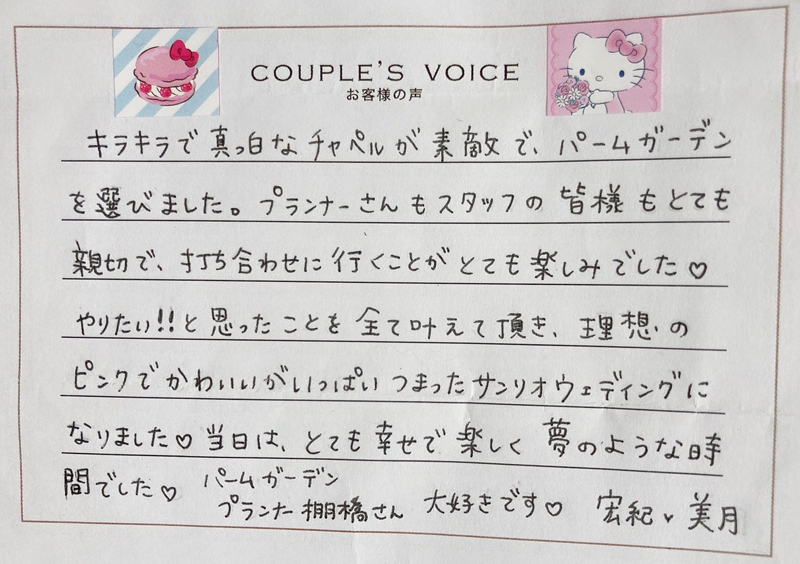 COUPLE'S VOICE
お客様の声
キラキラで真っ白なチャペルが素敵で、パームガーデン
を選びました。プランナーさんもスタッフの皆様もとても
親切で、打ち合わせに行くことがとても楽しみでした♡
やりたい!!と思ったことを全て叶えて頂き、理想の
ピンクでかわいいがいっぱいつまったサンリオウェディングに
なりました♡当日は、とても幸せで楽しく夢のような時
間でした♡ パームガーデン
プランナー棚橋さん 大好きです♡ 宏紀♥美月